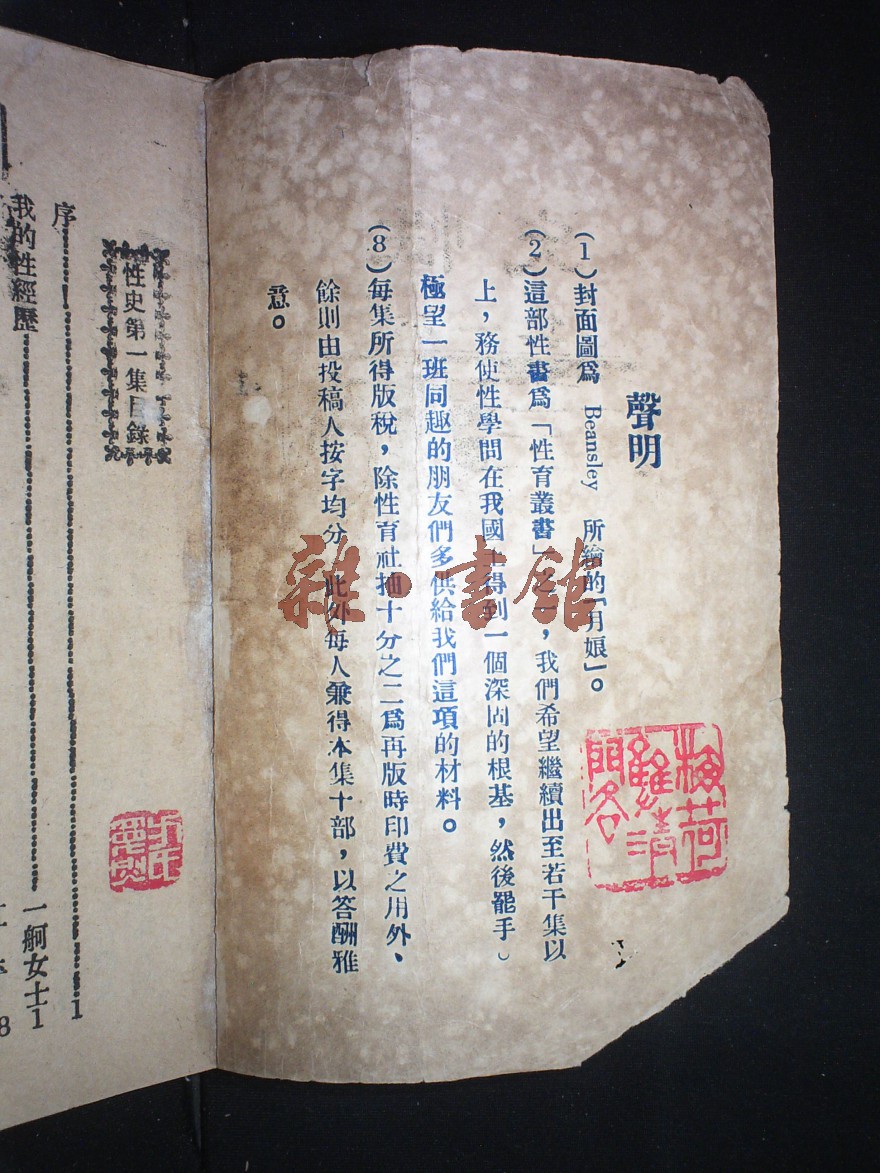 聲明
(1)封面圖爲 Beansley 所繪的「月娘」。
(2)這部性書爲「性育叢書」之一，我們希望繼續出至若干集以
上，務使性學問在我國上得到一個深固的根基，然後罷手。
極望一班同趣的朋友們多供給我們這項的材料。
(8)每集所得版稅，除性育社抽十分之二爲再版時印費之用外、
餘則由投稿人按字均分 此外每人兼得本集十部，以答酬雅
意。
雜·書館
性史第一集目錄
序 1
我的性經歷 一舸女士 1
8